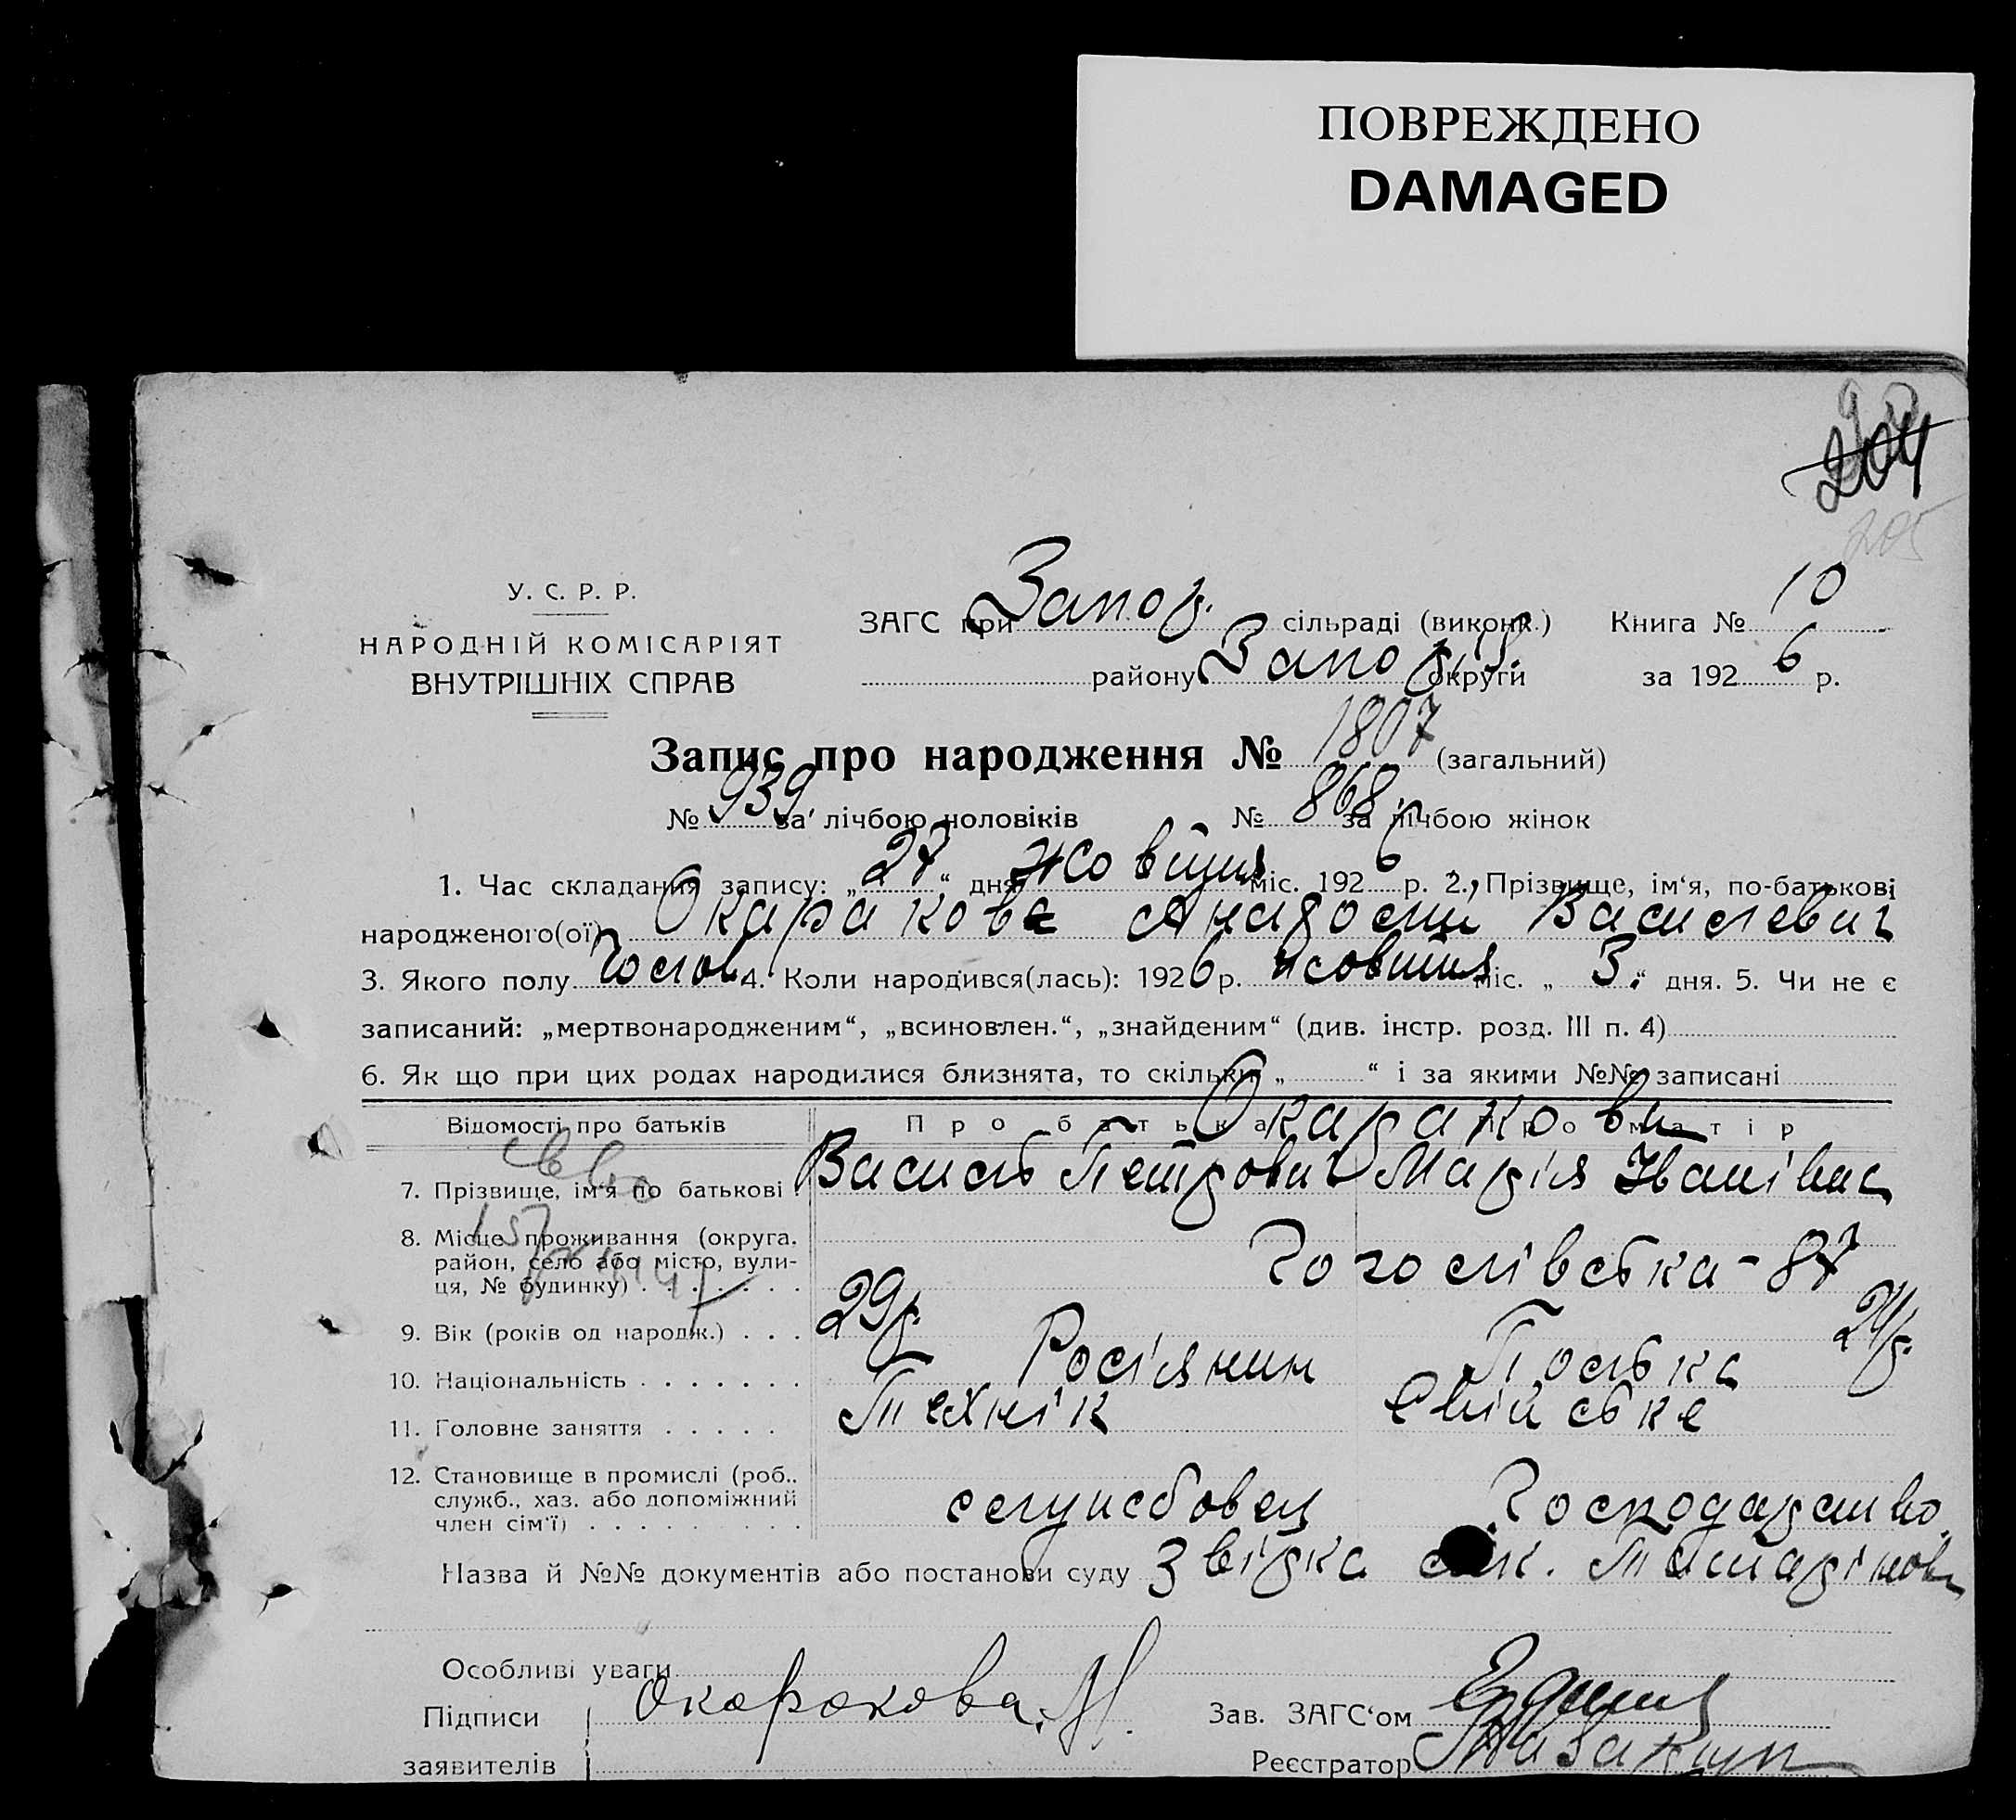 ПОВРЕЖДЕНО
DAMAGED
204
205
У. С. Р. Р.
НАРОДНІЙ КОМІСАРІЯТ
ВНУТРІШНІХ СПРАВ
ЗАГС при Запор. сільраді (виконк.) Книга № 10
району Запор. округи за 1926 р.
Запис про народження № 1807 (загальний)
№ 939 за лічбою чоловіків № 868 за лічбою жінок
1. Час складання запису: „27“ дня жовтня міс. 1926 р. 2. Прізвище, ім‘я, по-батькові
народженого(ої) Окаракова Василевич
3. Якого полу чолов. 4. Коли народився(лась): 1926 р. жовтня міс. „3“ дня. 5. Чи не є
записаний: „мертвонародженим“, „всиновлен.“, „знайденим“ (див. інстр. розд. III п. 4)
6. Як що при цих родах народилися близнята, то скільки „ “ і за якими №№ записані
Відомості про батьків Про батька Про матір
Окаракови
7. Прізвище, ім‘я по батькові Василь Петрович Марія Іванівна
8. Місце проживання (округа,
район, село або місто, вули-
ця, № будинку) Гоголівська-87
9. Вік (років од народж.) 29 р. 24 р.
10. Національність Росіянин Полька
11. Головне заняття Технік Свійське
12. Становище в промислі (роб.,
служб., хаз. або допоміжний
член сім‘ї) службовец Господарство.
Назва й №№ документів або постанови суду Звірка
Особливі уваги
Підписи
заявителів Окоракова М.
Зав. ЗАГС‘ом
Реєстратор